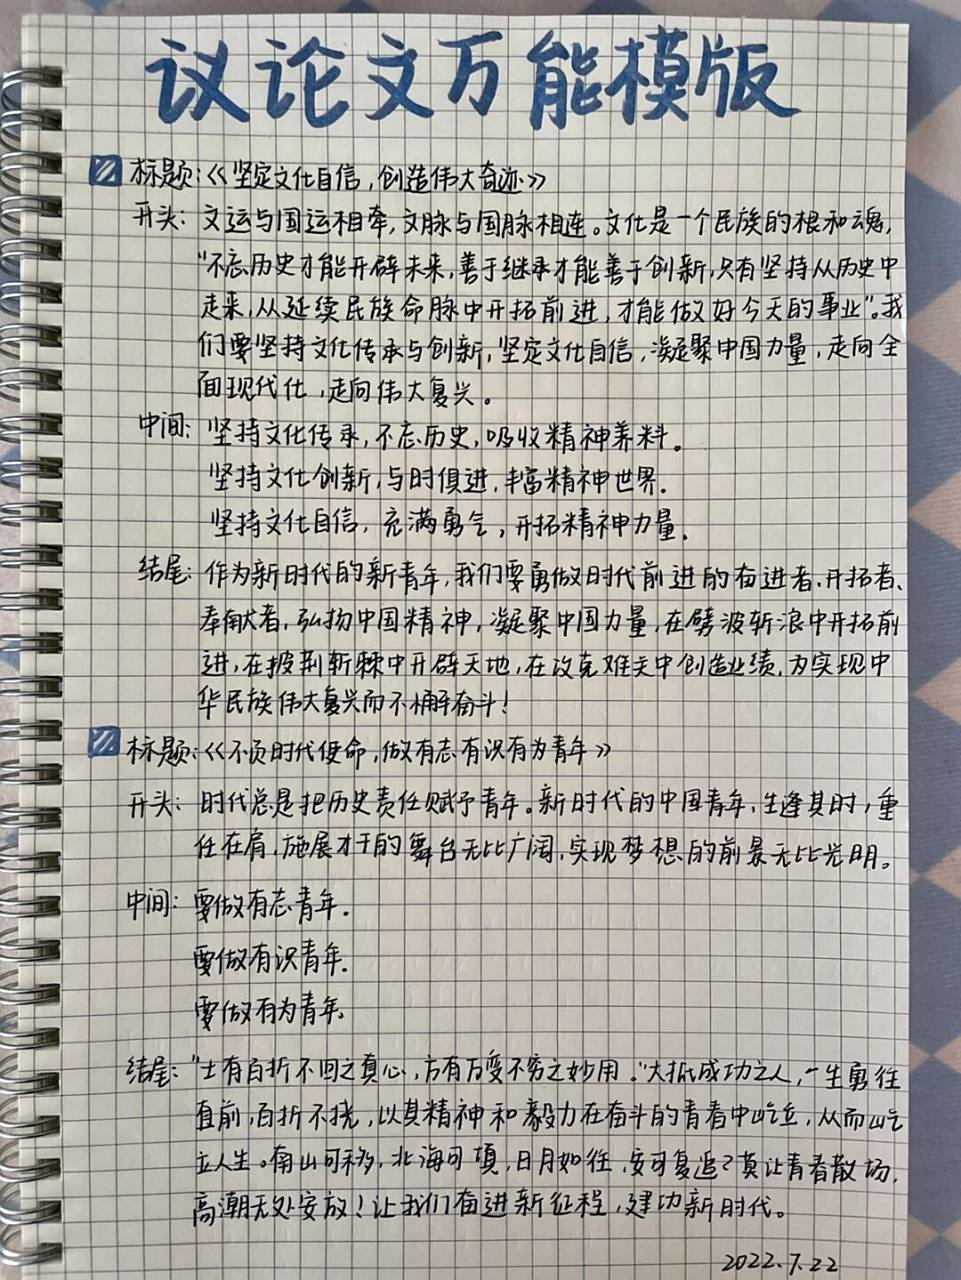 议论文万能模版
标题:《坚定文化自信,创造伟大奇迹》
开头: 文运与国运相牵,文脉与国脉相连。文化是一个民族的根和魂,
"不忘历史才能开辟未来,善于继承才能善于创新,只有坚持从历史中
走来,从延续民族命脉中开拓前进,才能做好今天的事业"。我
们要坚持文化传承与创新,坚定文化自信,凝聚中国力量,走向全
面现代化,走向伟大复兴。
中间: 坚持文化传承,不忘历史,吸收精神养料。
坚持文化创新,与时俱进,丰富精神世界.
坚持文化自信,充满勇气,开拓精神力量.
结尾: 作为新时代的新青年,我们要勇做时代前进的奋进者、开拓者、
奉献者,弘扬中国精神,凝聚中国力量,在劈波斩浪中开拓前
进,在披荆斩棘中开辟天地,在攻克难关中创造业绩,为实现中
华民族伟大复兴而不懈奋斗!
标题:《不负时代使命,做有志有识有为青年》
开头: 时代总是把历史责任赋予青年。新时代的中国青年,生逢其时,重
任在肩,施展才干的舞台无比广阔,实现梦想的前景无比光明。
中间: 要做有志青年.
要做有识青年.
要做有为青年.
结尾: "士有百折不回之真心,方有万变不穷之妙用."大抵成功之人,一生勇往
直前,百折不挠,以其精神和毅力在奋斗的青春中屹立,从而屹
立人生。南山可移,北海可填,日月如往,安可复追?莫让青春散场,
高潮无处安放!让我们奋进新征程,建功新时代。
2022.7.22